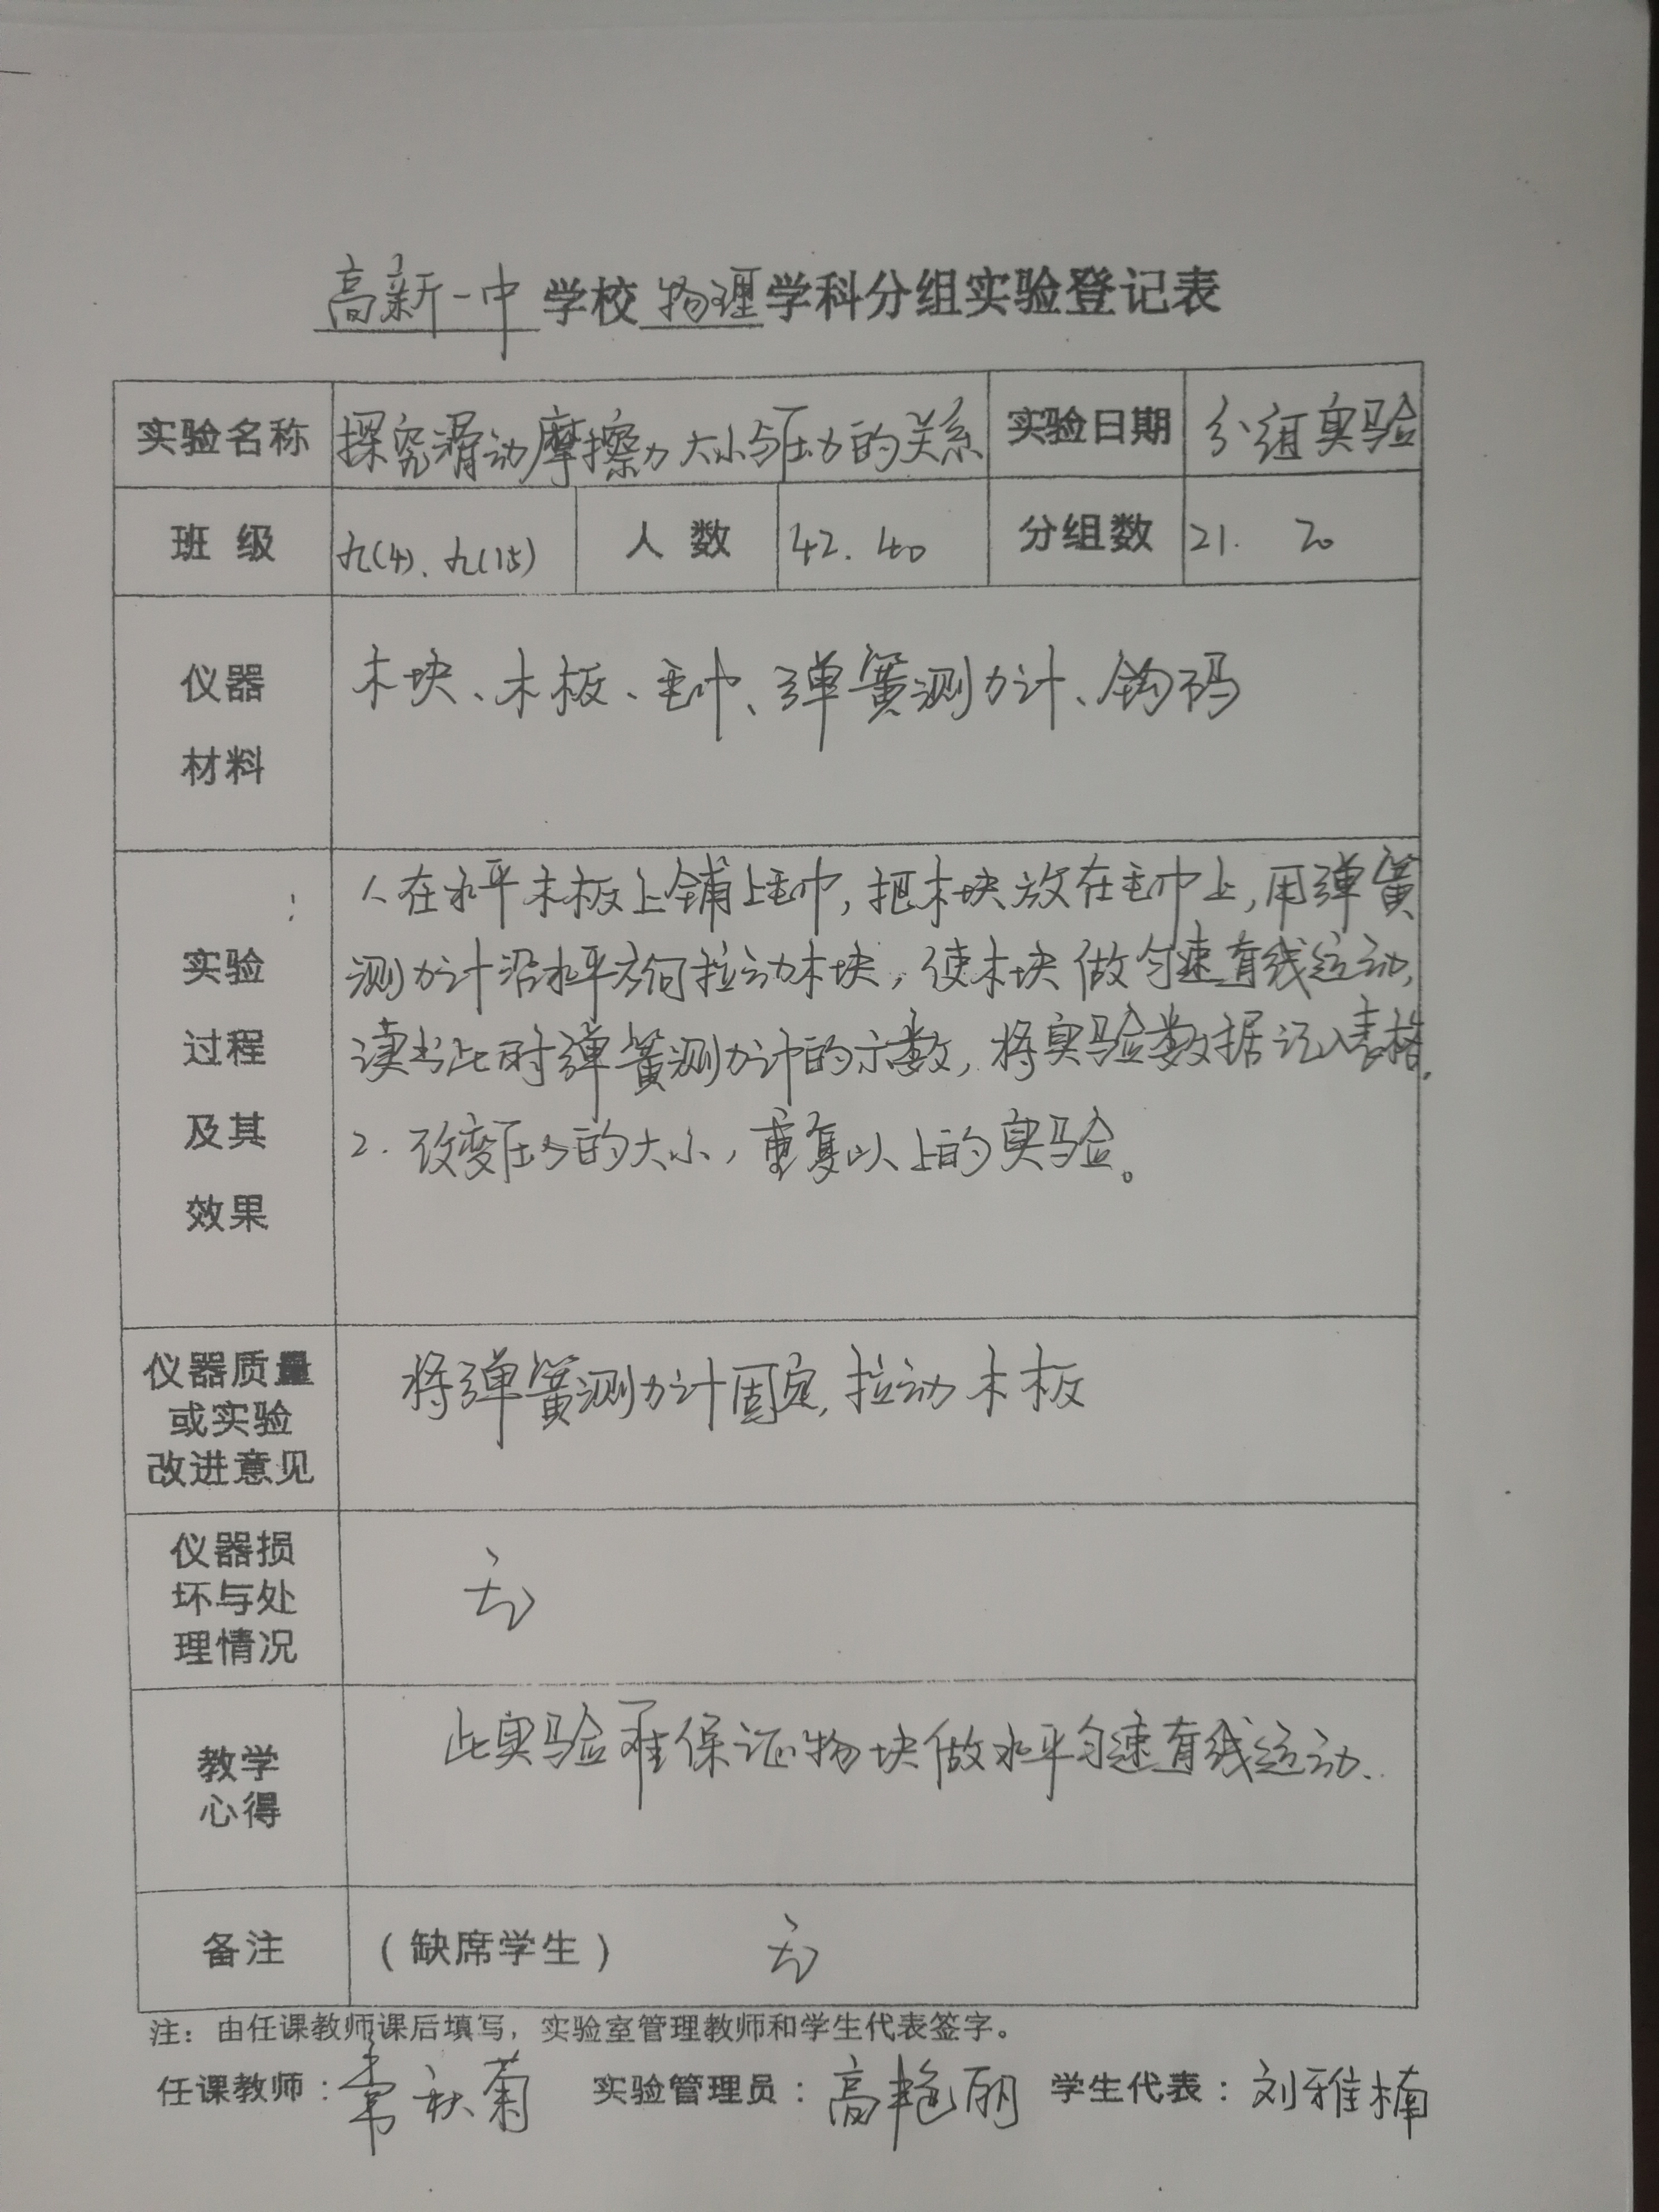 高新一中学校物理学科分组实验登记表
实验名称 探究滑动摩擦力大小与压力的关系 实验日期 分组实验
班 级 九(4)、九(15) 人 数 42. 40 分组数 21. 20
仪器 木块、木板、毛巾、弹簧测力计、钩码
材料
实验
过程
及其
效果
1. 在水平木板上铺上毛巾,把木块放在毛巾上,用弹簧
测力计沿水平方向拉动木块,使木块做匀速直线运动,
读出此时弹簧测力计的示数,将实验数据记入表格.
2. 改变压力的大小,重复以上的实验。
仪器质量
或实验
改进意见
将弹簧测力计固定,拉动木板
仪器损
坏与处
理情况
无
教学
心得
此实验难保证物块做水平匀速直线运动.
备注 (缺席学生) 无
注:由任课教师课后填写,实验室管理教师和学生代表签字。
任课教师: 秋菊 实验管理员:高艳丽 学生代表:刘雅楠